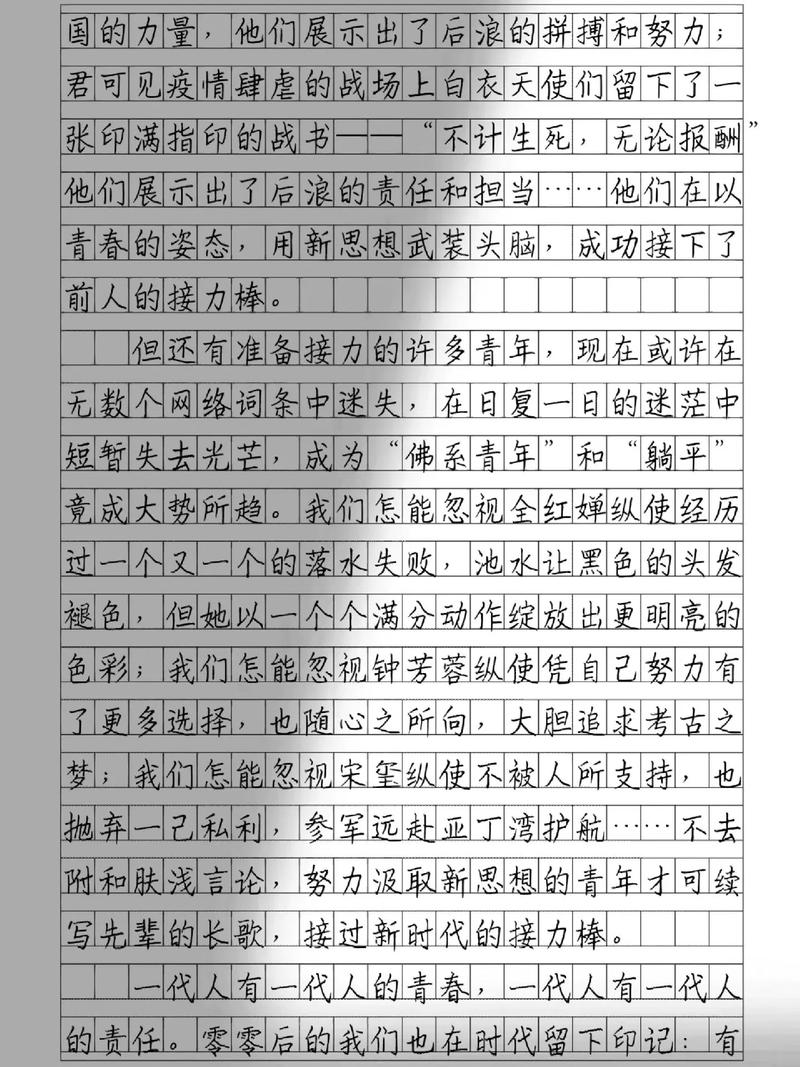 国的力量，他们展示出了后浪的拼搏和努力；
君可见疫情肆虐的战场上白衣天使们留下了一
张印满指印的战书——“不计生死，无论报酬”
他们展示出了后浪的责任和担当……他们在以
青春的姿态，用新思想武装头脑，成功接下了
前人的接力棒。
但还有准备接力的许多青年，现在或许在
无数个网络词条中迷失，在日复一日的迷茫中
短暂失去光芒，成为“佛系青年”和“躺平”
竟成大势所趋。我们怎能忽视全红婵纵使经历
过一个又一个的落水失败，池水让黑色的头发
褪色，但她以一个个满分动作绽放出更明亮的
色彩；我们怎能忽视钟芳蓉纵使凭自己努力有
了更多选择，也随心之所向，大胆追求考古之
梦；我们怎能忽视宋玺纵使不被人所支持，也
抛弃一己私利，参军远赴亚丁湾护航……不去
附和肤浅言论，努力汲取新思想的青年才可续
写先辈的长歌，接过新时代的接力棒。
一代人有一代人的青春，一代人有一代人
的责任。零零后的我们也在时代留下印记：有